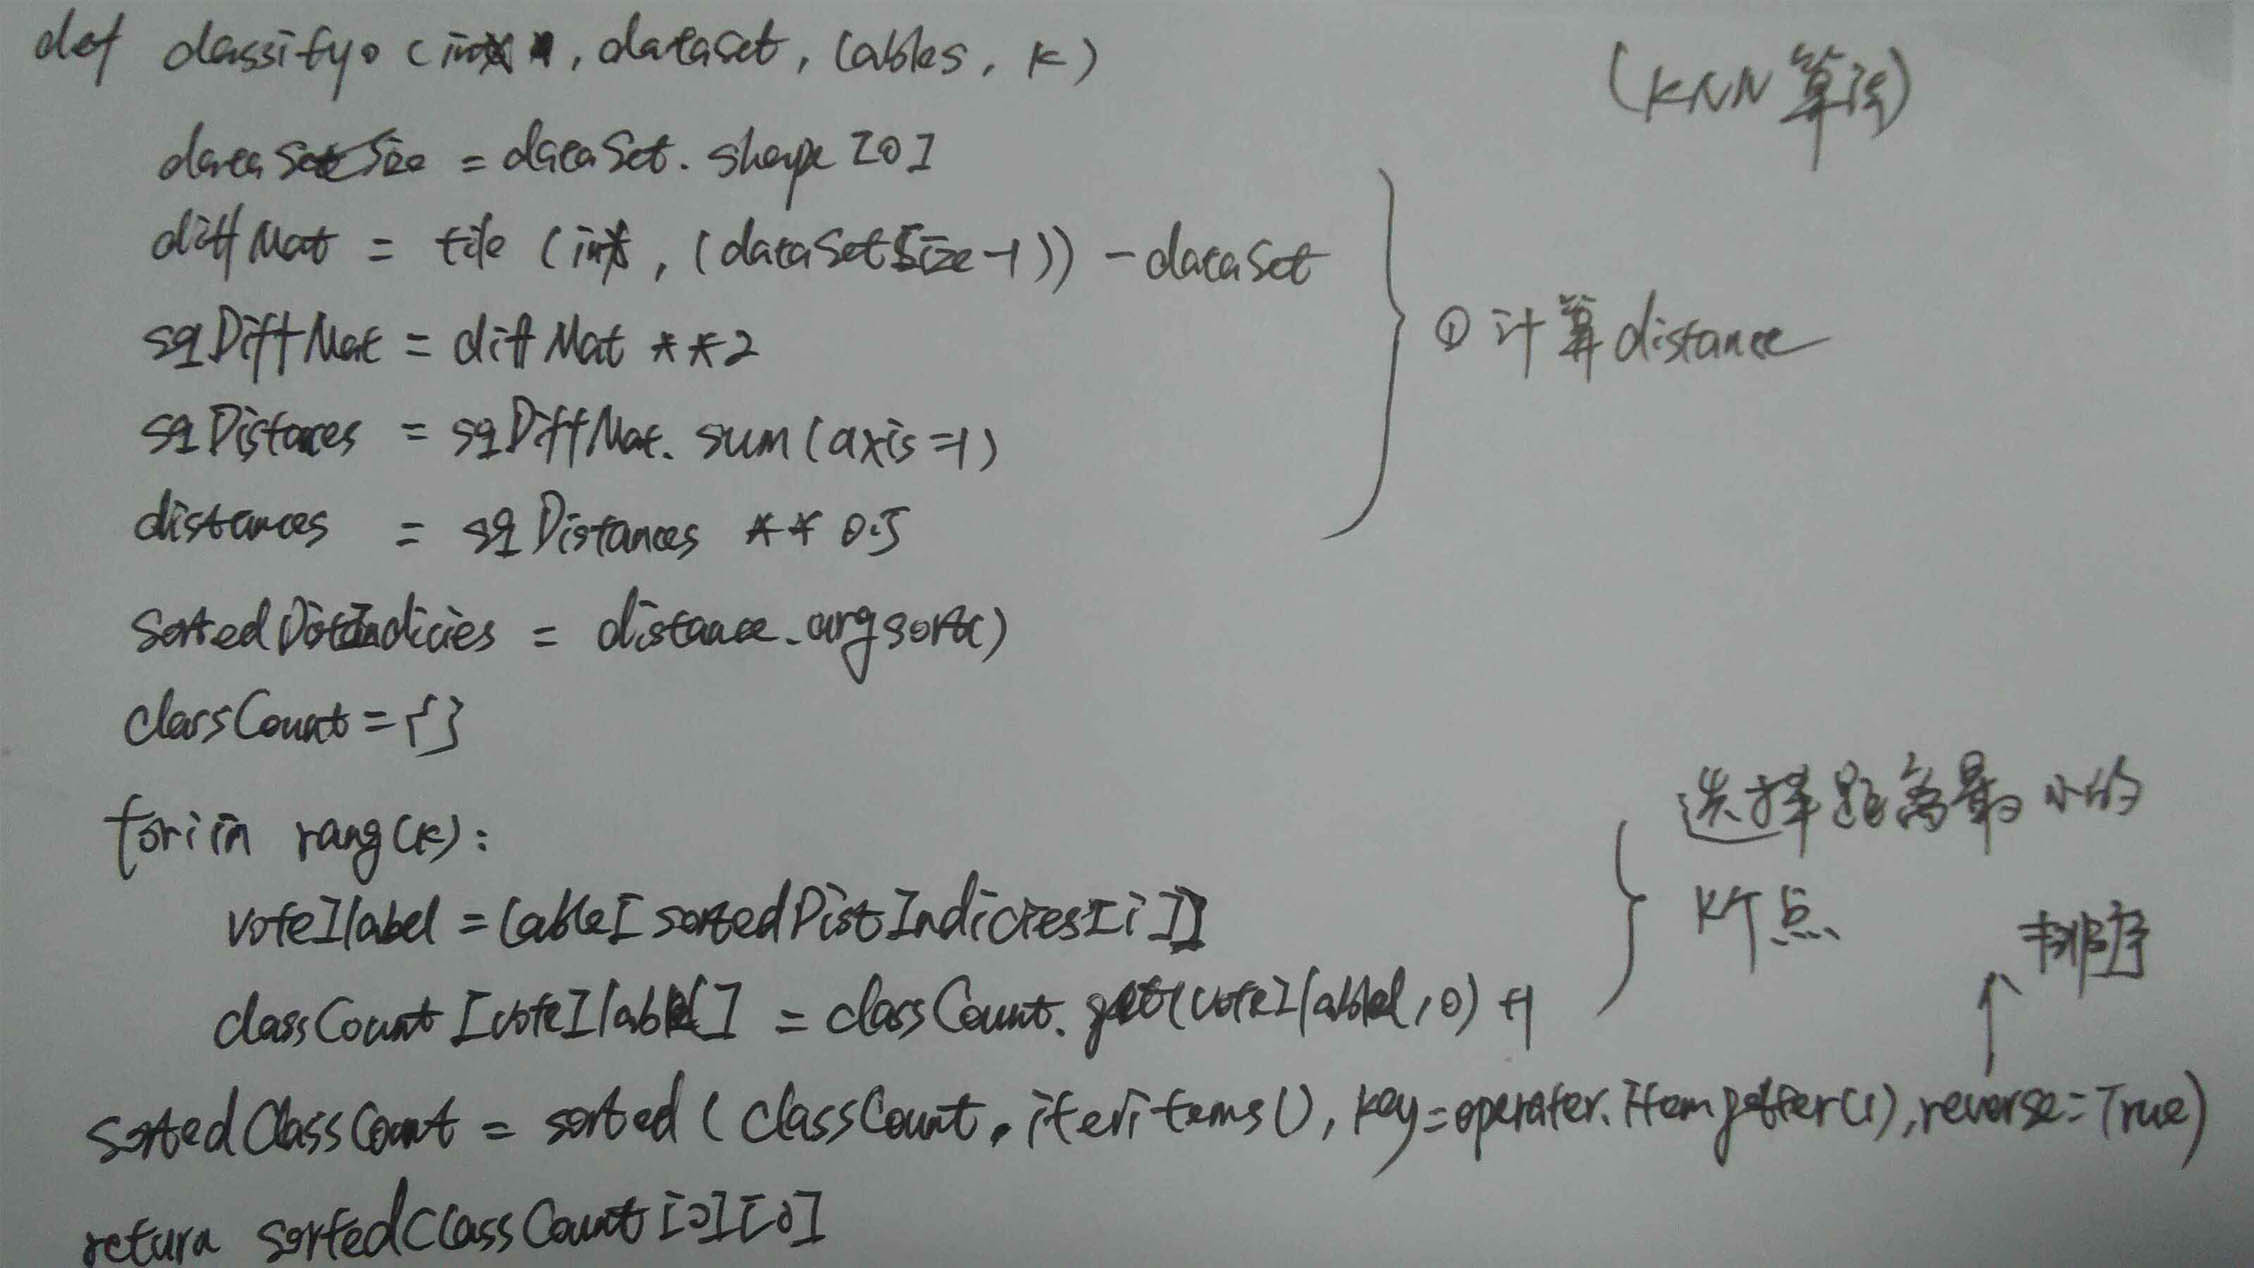 def classify0 (inX, dataset, lables, K)
(KNN 算法)
dataSetSize = dataSet. shape [0]
diffMat = tile (inX, (dataSetSize-1)) - dataSet
sqDiffMat = diffMat **2
① 计算distance
sqDistaces = sqDiffMat. sum (axis=1)
distances = sqDistances ** 0.5
SortedDistIndicies = distance.argsort()
classCount = {}
for i in rang(K):
选择距离最小的
K个点
voteIlabel = lable[sortedDistIndicies[i]]
排序
classCount [voteIlabel] = classCount. get(voteIlabel, 0) +1
sortedClassCount = sorted (classCount. iteritems(), key=operater.itemgetter(1), reverse=True)
return sortedClassCount[0][0]